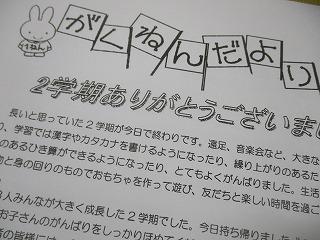 1ねん
がくねんだより
2学期ありがとうございまし
長いと思っていた2学期が今日で終わりです。遠足、音楽会など、大きな
り、学習では漢字やカタカナを書けるようになったり、繰り上がりのあるた
のあるひき算ができるようになったり、とてもよくがんばりました。生活
物と身の回りのものでおもちゃを作って遊び、友だちと楽しい時間を過ご
人みんなが大きく成長した2学期でした。今日持ち帰りました
お子さんのがんばりをしっかりほめて
皆様には